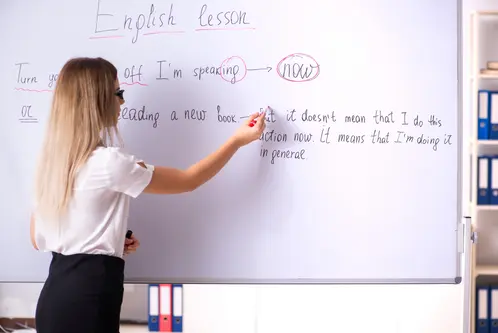 English lesson
Turn off I'm speaking → now
or a new book → it doesn't mean that I do this
action now. It means that I'm doing it
in general.